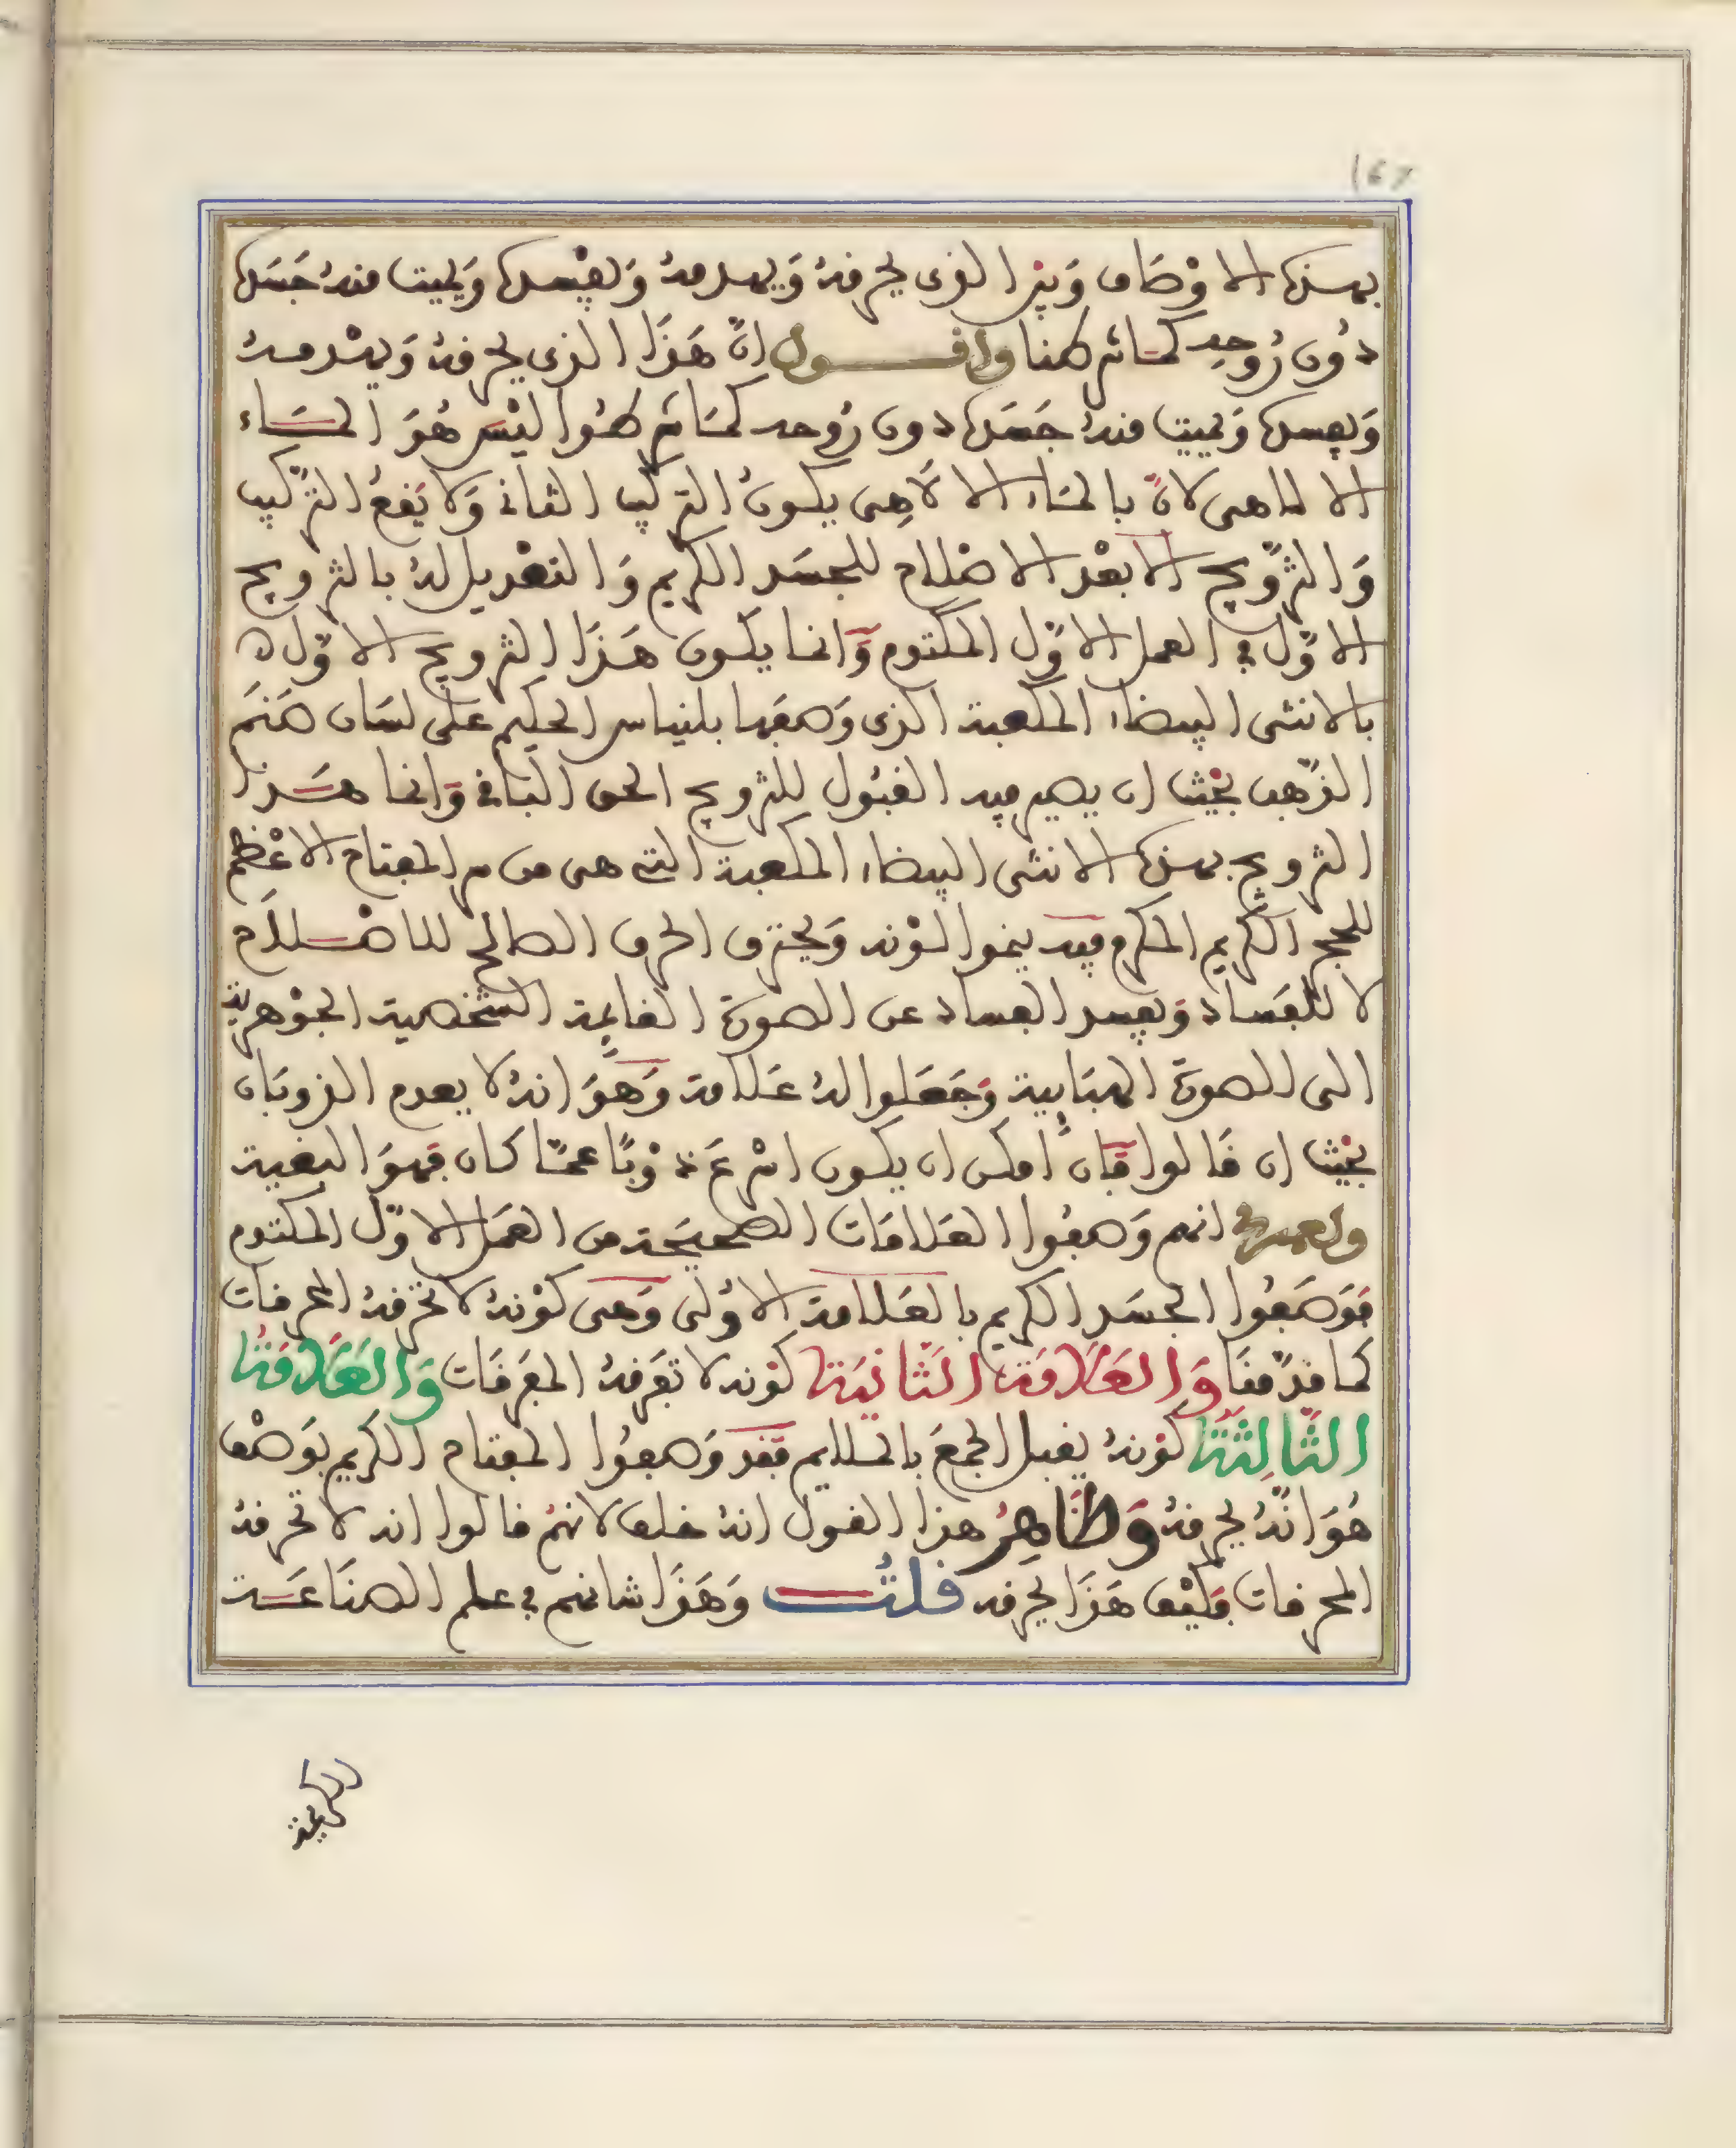 167
بهذه الاوصاف وبين الذي يحرفه ويهدمه ويفسده ويميت منه جسده
دون روحه كما تر كمنا وافول ان هذا الذي يحرفه ويهدمه
ويفسده ويميت منه جسده دون روحه كما تر كموا ليس هو الماء
الالاهي لان بالماء الالاهي يكون التركيب الثاني ولا يقع التركيب
والتزويج الا بعد الاصلاح للجسد الكريم والتعديل له بالتزويج
الاول في العمل الاول المكتوم وانما يكون هذا التزويج الاول
بالانثى البيضاء المكعبة الذي وصفها بلنياس الحكيم على لسان صنم
الذهب بحيث ان يصير فيه القبول للتزويج الحق الباقي وانما هذا
التزويج بهذه الانثى البيضاء المكعبة التي هي من سر المفتاح الاعظم
للحجر الكريم المكرم فيه ينموا لونه ويحترق الحرق الصالح للاصلاح
لا للفساد ويفسد الفساد عن الصورة القايمة الشخصية الجوهرية
الى الصورة الهبايية وجعلوا له علامة وهو انه لا يعدم الذوبان
بحيث ان قالوا فان امكن ان يكون اسرع ذوبا عما كان فهو البغية
ولعمري انهم وصفوا العلامات الصحيحة من العمل الاول المكتوم
فوصفوا الجسد الكريم بالعلامة الاولى وهى كونه لا تحرفه المحرفات
كما قدمنا والعلامة الثانية كونه لا تعرفه المعرفات والعلامة
الثالثة كونه يقبل الجمع بالملايم فقد وصفوا المفتاح الكريم بوصف
هو انه يحرفه وظاهر هذا القول انه خلف لانهم قالوا انه لا تحرفه
المحرفات فكيف هذا يحرفه قلت وهذا شانهم في علم الصناعة
الكريمة